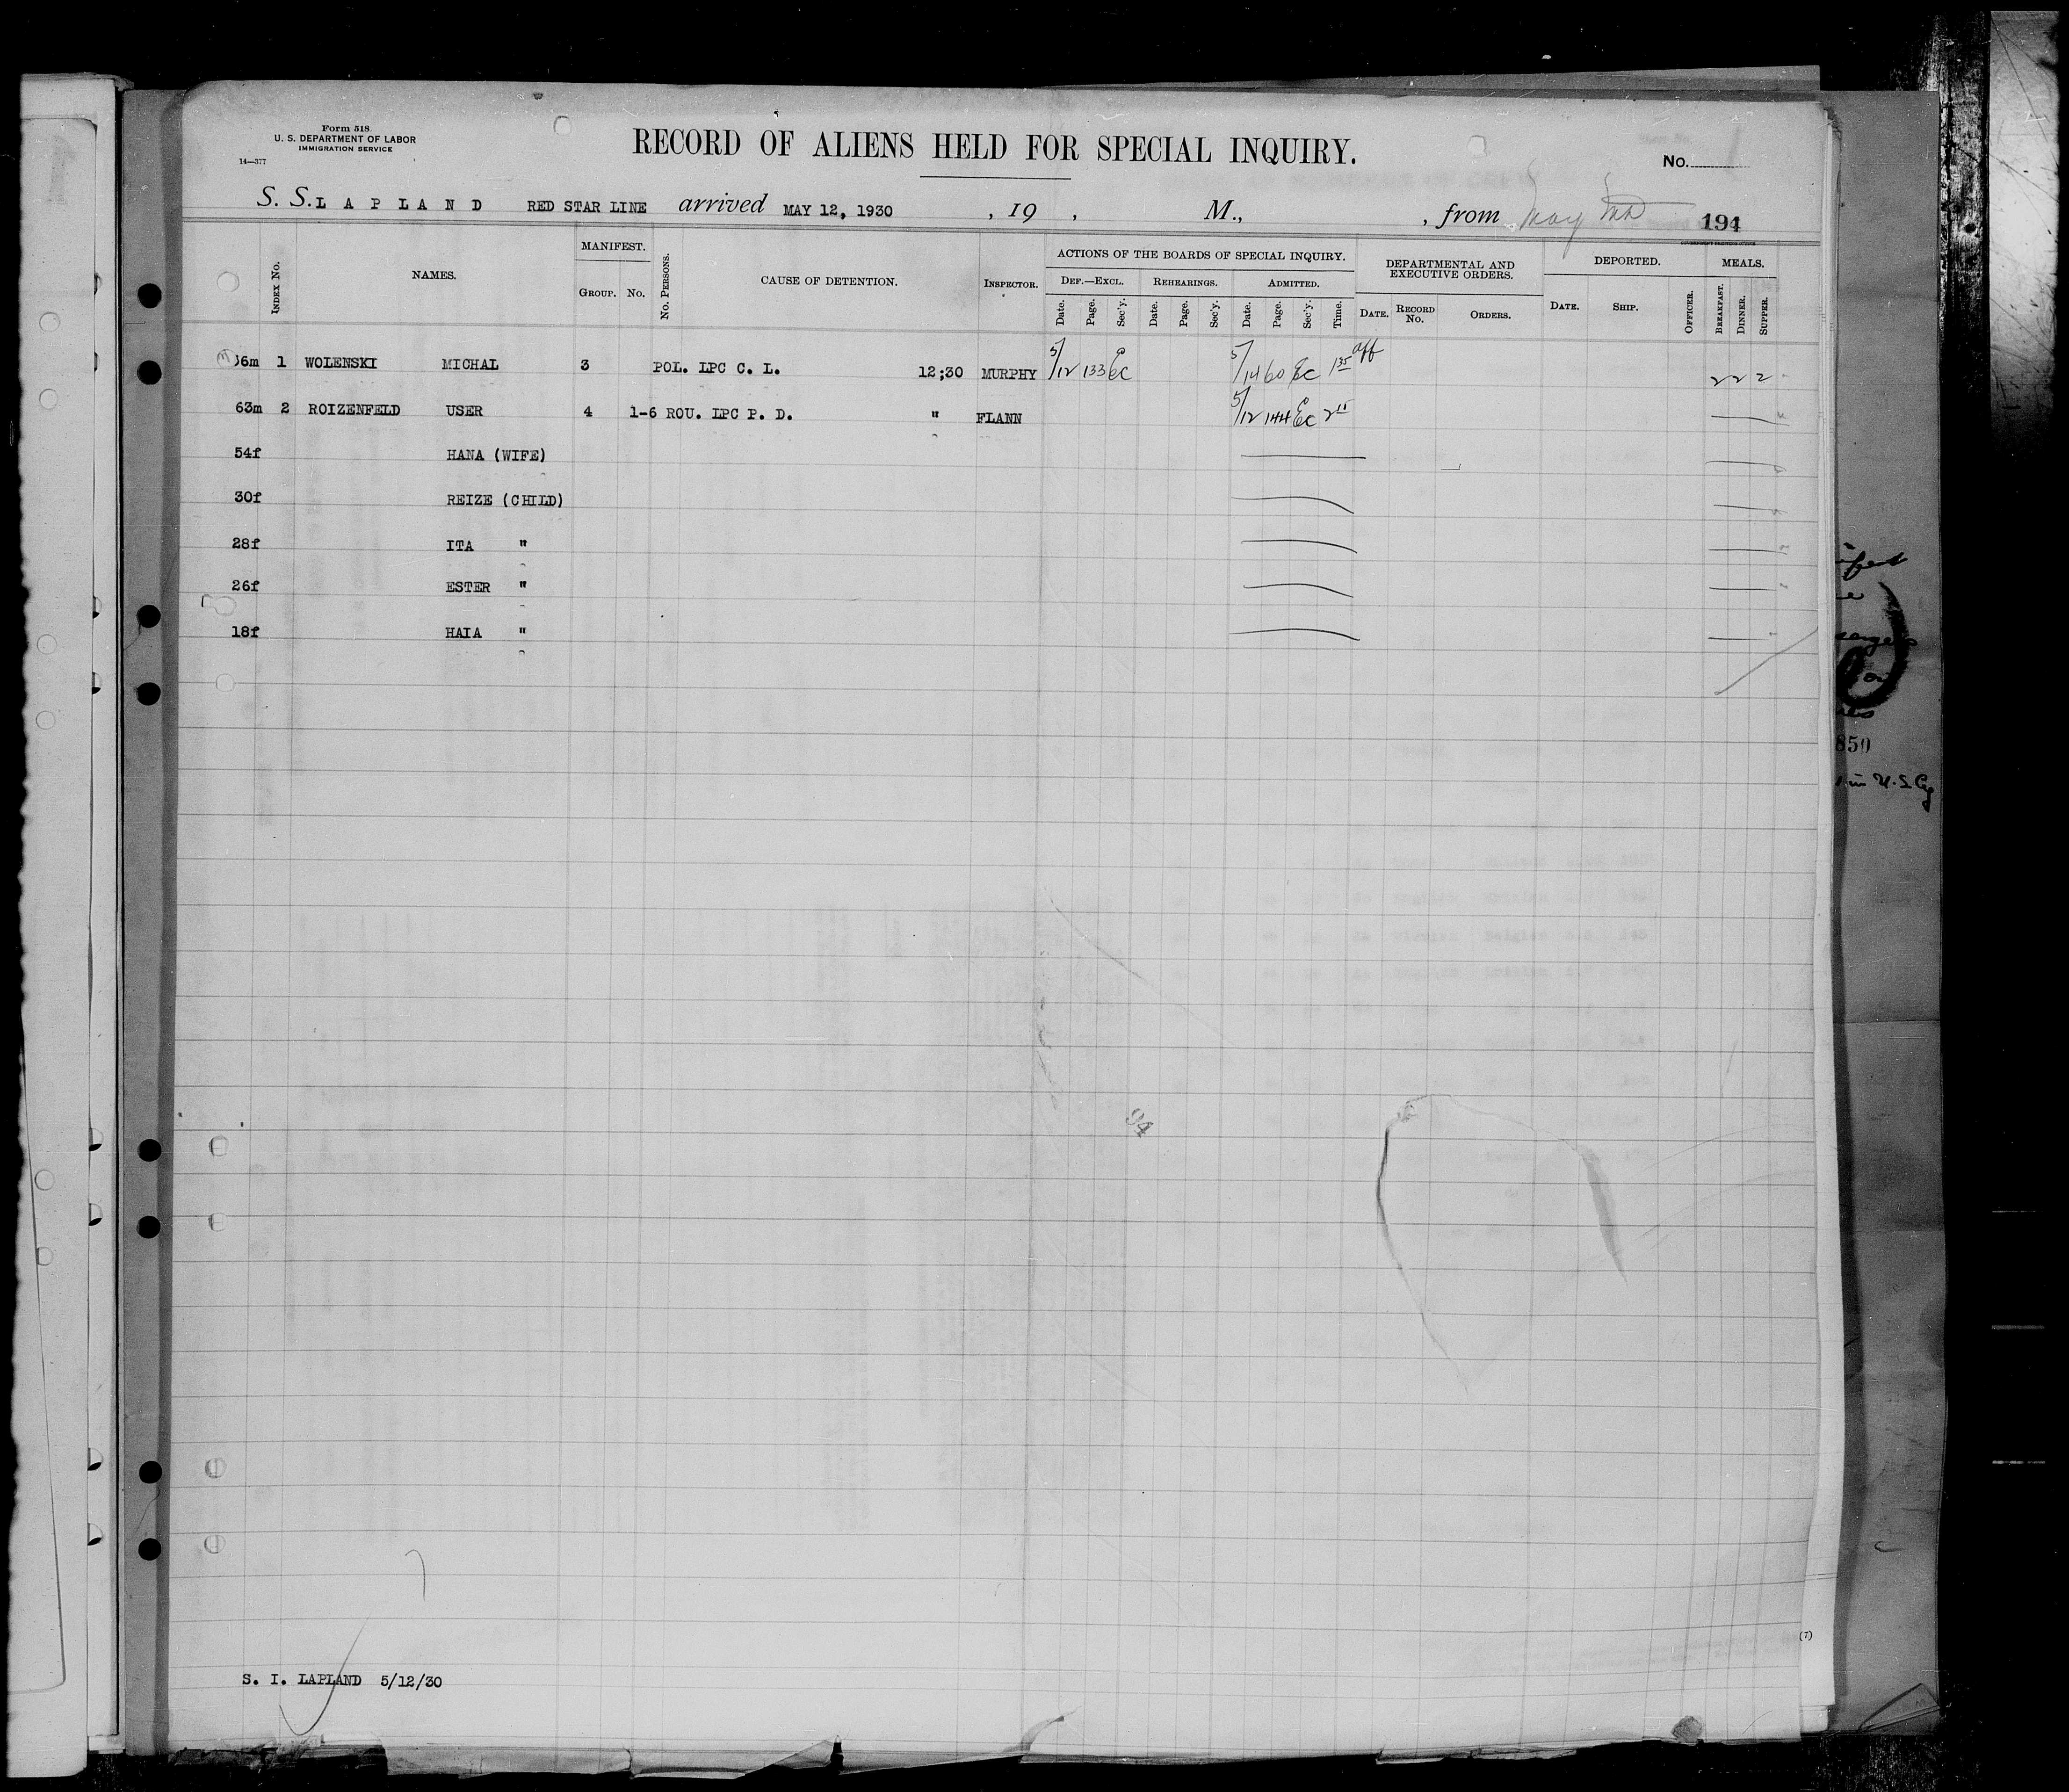 Form 518
U. S. DEPARTMENT OF LABOR
IMMIGRATION SERVICE
14—377
RECORD OF ALIENS HELD FOR SPECIAL INQUIRY.
No.
S. S. LAPLAND RED STAR LINE arrived MAY 12, 1930 , 19 , M., , from May 194
INDEX No. NAMES. MANIFEST. GROUP. No. No. PERSONS. CAUSE OF DETENTION. INSPECTOR. ACTIONS OF THE BOARDS OF SPECIAL INQUIRY. DEPARTMENTAL AND EXECUTIVE ORDERS. DEPORTED. MEALS.
DEF.—EXCL. REHEARINGS. ADMITTED.
Date. Page. Sec'y. Date. Page. Sec'y. Date. Page. Sec'y. Time. DATE. RECORD No. ORDERS. DATE. SHIP. OFFICER. BREAKFAST. DINNER. SUPPER.
6m 1 WOLENSKI MICHAL 3 POL. LPC C. L. 12;30 MURPHY 5/12 133 EC 5/14 60 EC 1 35 2 2 2
63m 2 ROIZENFELD USER 4 1-6 ROU. LPC P. D. " FLANN 5/12 144 EC 2 15
54f HANA (WIFE)
30f REIZE (CHILD)
28f ITA "
26f ESTER "
18f HAIA "
850
in U.S.
94
(7)
S. I. LAPLAND 5/12/30